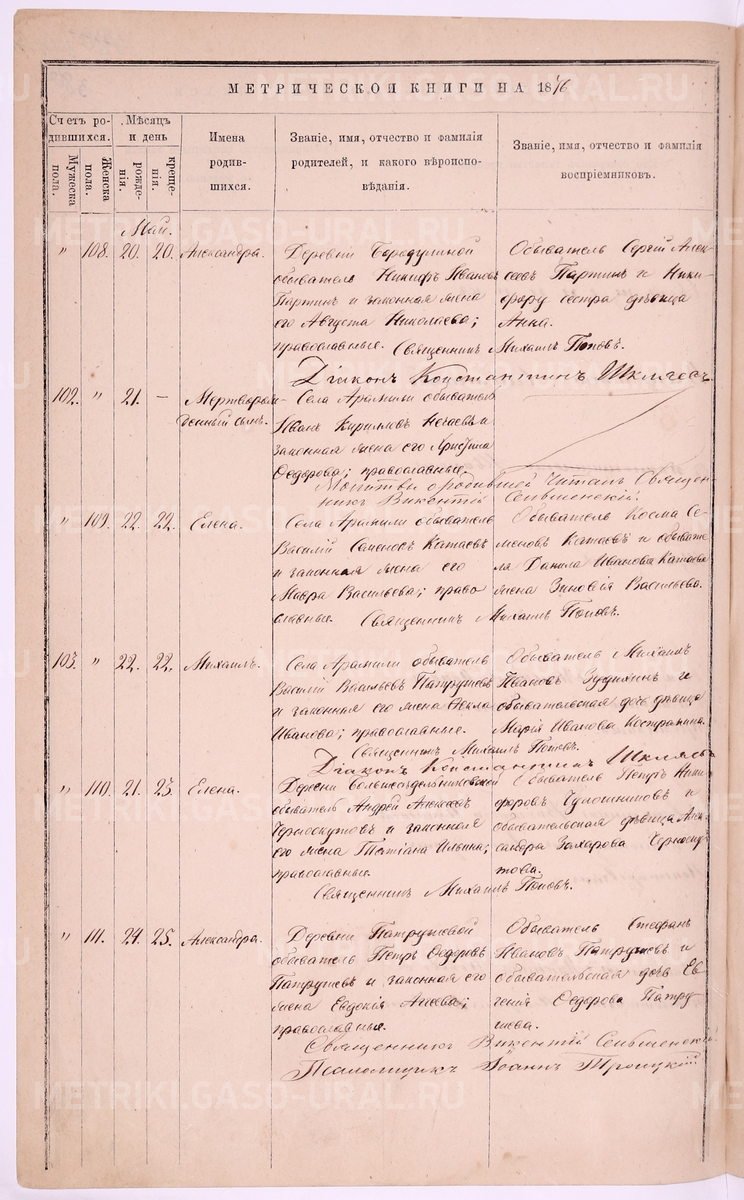 МЕТРИЧЕСКОЙ КНИГИ НА 1876
Счетъ родившихся.
Мужеска пола.
Женска пола.
Мѣсяцъ и день
рожденія.
крещенія.
Имена родившихся.
Званіе, имя, отчество и фамилія родителей, и какого вѣроисповѣданія.
Званіе, имя, отчество и фамилія воспріемниковъ.
Май.
" 108. 20. 20. Александра.
Деревни Бородулиной
обыватель Никифръ Ивановъ
Партинъ и законная жена
его Августа Николаева;
православные.
Обыватель Сергій Алек-
сеевъ Партинъ и Ники-
фору сестра дѣвица
Анна.
Священникъ Михаилъ Поповъ.
Діаконъ Константинъ
102. " 21. — Мертворож-
денный сынъ.
Села Арамили обыватель
Иванъ Кириловъ Нечаевъ и
законная жена его Христина
Ѳедорова; православные.
Молитвы о родившей читалъ Священ-
никъ Викентій
" 109. 22. 22. Елена.
Села Арамили обыватель
Василій Семеновъ Катаевъ
и законная жена его
Мавра Васильева; право-
славные.
Обыватель Косма Се-
меновъ Катаевъ и обывате-
ля Данила Иванова Катаева
жена Зиновія Васильева.
Священникъ Михаилъ Поповъ.
103. " 22. 22. Михаилъ.
Села Арамили обыватель
Василій Васильевъ Патрушевъ
и законная его жена Ѳекла
Иванова; православные.
Обыватель Михаилъ
Ивановъ и
обывательская дочь дѣвица
Марія Иванова
Священникъ Михаилъ Поповъ.
Діаконъ Константинъ
" 110. 21. 23. Елена.
Деревни Большесѣдельниковской
обыватель Андрей Алексеевъ
Черноскутовъ и законная
его жена Татіана Ильина;
православные.
Обыватель Петръ Ники-
форовъ и
обывательская дѣвица Алек-
сандра Захарова Черноску-
това.
Священникъ Михаилъ Поповъ.
" 111. 24. 25. Александра.
Деревни Патрушевой
обыватель Петръ Ѳедоровъ
Патрушевъ и законная его
жена Евдокія
православные.
Обыватель Стефанъ
Ивановъ Патрушевъ и
обывательская дочь Ев-
генія Ѳедорова Патру-
шева.
Священникъ Викентій
Псаломщикъ Іоаннъ Троицкій
METRIKI.GASO-URAL.RU